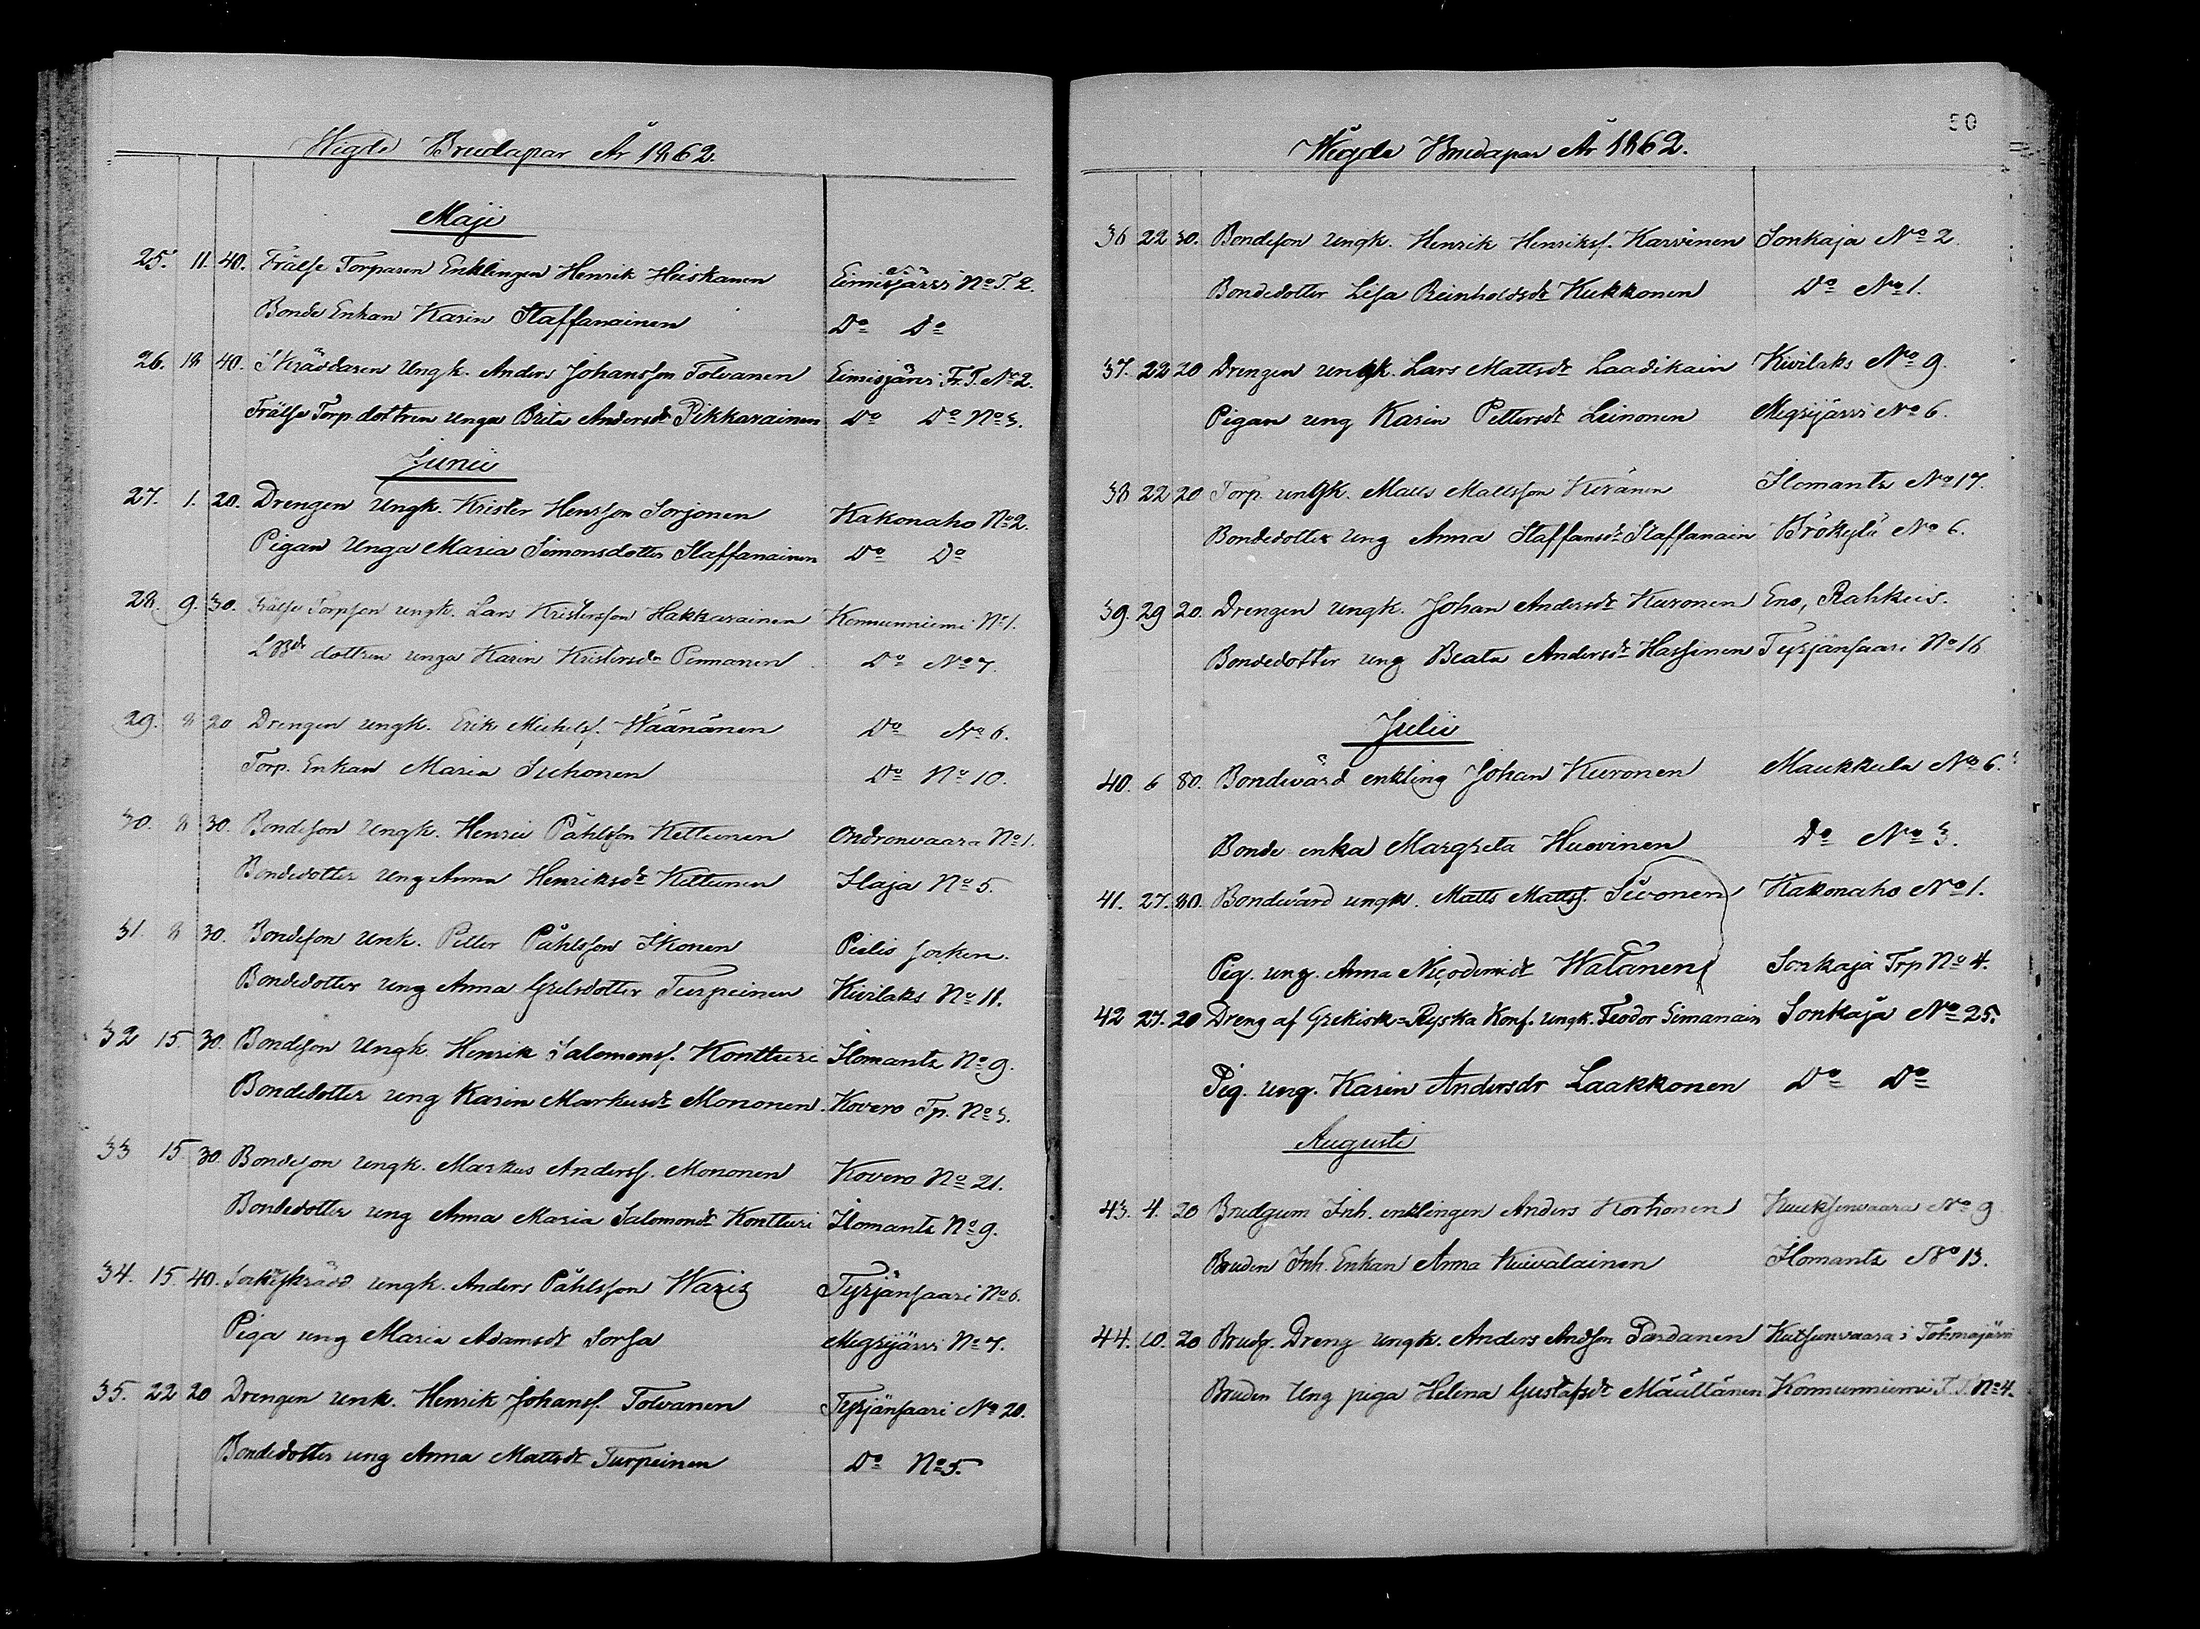 Wigde Brudapar År 1862.
Maji
25. 11. 40. Frälse Torparen Enklingen Henrik Heiskanen Eimisjärvi No T. 2.
Bonde Enkan Karin Staffanainen Do Do
26. 18 40. Skräddaren Ungk. Anders Johansson Tolvanen Eimisjärvi Fr. T. No 2.
Frälse Torp dottren unga Brita Andersdr Pikkarainen Do Do No 3.
Junii
27. 1. 20. Drengen Ungk. Krister Hensson Sorjonen Kakonaho No 2.
Pigan Unga Maria Simonsdotter Staffanainen Do Do
28. 9. 30. Frälse Torpson ungk. Lars Kristersson Hakkarainen Konnunniemi No 1.
dottren unga Karin Kristersdr Penmanen Do No 7.
29. 8 20 Drengen ungk. Erik Michelss. Wäänänen Do No 6.
Torp. Enkan Maria Suhonen Do No 10.
30. 8 30. Bondeson Ungk. Henric Påhlsson Kettunen Ondronvaara No 1.
Bondedotter Ung Anna Henriksdr Kettunen Ilaja No 5.
31. 8 30. Bondeson Unk. Petter Påhlsson Ikonen Pielis Socken.
Bondedotter ung Anna Grelsdotter Turpeinen Kivilaks No 11.
32 15. 30. Bondeson Ungk. Henrik Salomonss. Kontturi Ilomants No 9.
Bondedotter ung Karin Markusdr Mononen. Kovero Tp. No 3.
33 15 30 Bondeson Ungk. Markus Anderss. Mononen Kovero No 21.
Bondedotter ung Anna Maria Salomondr Kontturi Ilomants No 9.
34. 15. 40. Sockneskrädd ungk. Anders Påhlsson Waris Tyrjänsaari No 6.
Piga ung Maria Adamsdr Sorsa Megrijärvi No 7.
35. 22 20 Drengen unk. Henrik Johanss. Tolvanen Tyrjänsaari No 20.
Bondedotter ung Anna Mattsdr Turpeinen Do No 5.
50
Wigde Brudapar År 1862.
36 22 30. Bondeson Ungk. Henrik Henrikss. Karvinen Sonkaja No 2.
Bondedotter Lisa Reinholdsdr Kukkonen Do No 1.
37. 22 20 Drengen ungk. Lars Mattsdr Laadikain Kivilaks No 9.
Pigan ung Karin Pettersdr Leinonen Megrijärvi No 6.
38 22 20 Torp. ungk. Matts Mattsson Keränen Ilomants No 17.
Bondedotter Ung Anna Staffansdr Staffanain Brökylä No 6.
39. 29 20. Drengen ungk. Johan Andersdr Kuronen Eno, Rahkeis.
Bondedotter ung Beata Andersdr Hassinen Tyrjänsaari No 16
Julii
40. 6 80. Bondevärd enkling Johan Kuronen Maukkula No 6.
Bonde enka Margreta Huovinen Do No 3.
41. 27. 80. Bondevärd ungk. Matts Mattss. Sivonen Kakonaho No 1.
Pig. ung. Anna Nicodemidr Watanen Sonkaja Trp No 4.
42 27. 20 Dreng af Grekisk=Ryska Konf. ungk. Feodor Simanain Sonkaja No 25.
Pig. ung. Karin Andersdr Laakkonen Do Do
Augusti
43. 4. 20 Brudgum Inh. enklingen Anders Korhonen Kuuksenvaara No 9
Bruden Inh. Enkan Anna Kuivalainen Ilomants No 13.
44. 10. 20 Brudg. Dreng ungk. Anders Andson Pardanen Kutsunvaara i Tohmajärvi
Bruden Ung piga Helena Gustafsdr Määttänen Konnunniemi F. T. No 4.